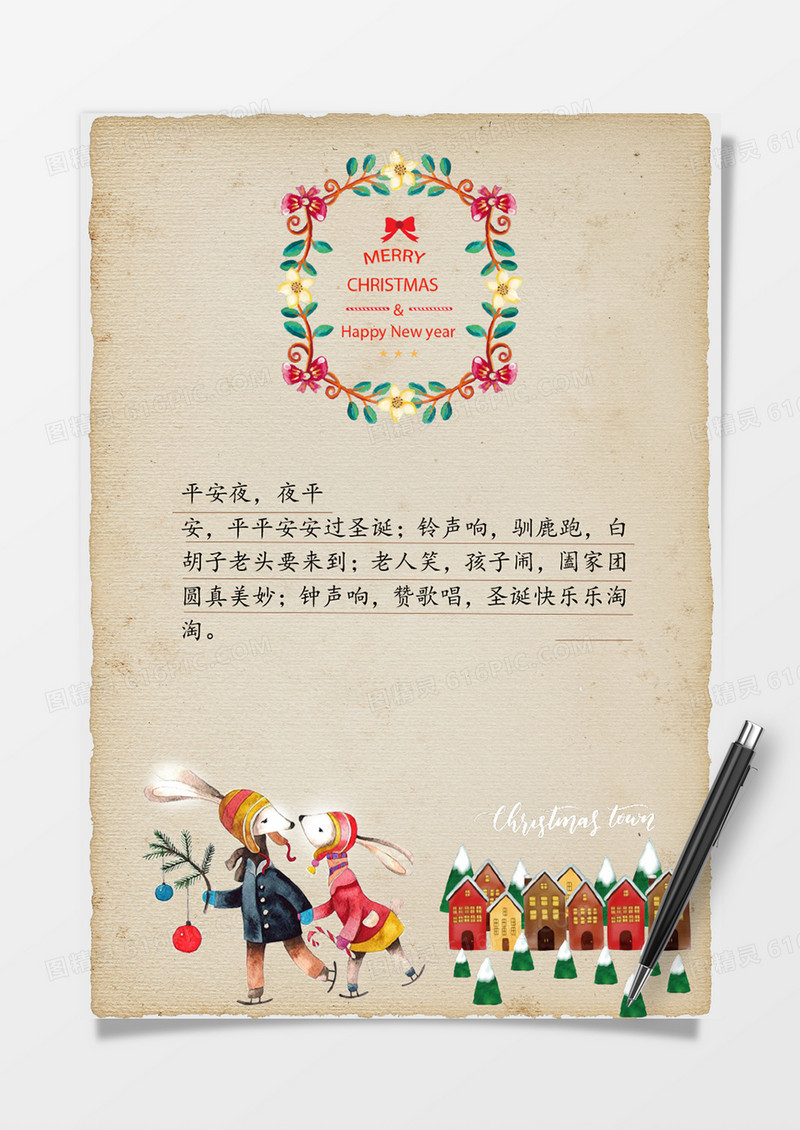 MERRY
CHRISTMAS
&
Happy New year
平安夜，夜平
安，平平安安过圣诞；铃声响，驯鹿跑，白
胡子老头要来到；老人笑，孩子闹，阖家团
圆真美妙；钟声响，赞歌唱，圣诞快乐乐淘
淘。
Christmas town
图精灵 616PIC.COM